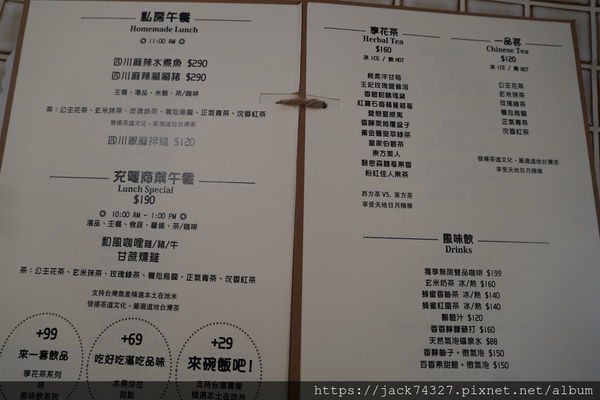 私房午餐
Homemade Lunch
11:00 AM
四川麻辣水煮魚 $290
四川麻辣涮涮豬 $290
主餐、湯品、米飯、茶/咖啡
茶：公主花茶、玄米抹茶、玫瑰綠茶、養心烏龍、正氣青茶、沉香紅茶
發揚茶道文化，嚴選道地台灣茶
四川椒麻拌麵 $120
充電商業午餐
Lunch Special
$190
10:00 AM - 1:00 PM
湯品、主餐、食蔬、薯條、茶/咖啡
和風咖哩雞/豬/牛
甘蔗燻雞
茶：公主花茶、玄米抹茶、玫瑰綠茶、養心烏龍、正氣青茶、沉香紅茶
支持台灣農產精選本土在地米
發揚茶道文化，嚴選道地台灣茶
+99
來一套飲品
享花茶系列
+69
吃好吃滿吃品味
水果沙拉
甜點
+29
來碗飯吧！
支持台灣農產
精選本土在地米
享花茶
Herbal Tea
$160
冰 ICE / 熱 HOT
輕柔洋甘菊
王妃玫瑰愛普洱
紅寶石香蘋蔓越莓
愛戀夏威夷
香檸萊姆覆盆子
黃金薑麥草綠茶
皇家伯爵茶
東方美人
粉紅佳人果茶
西方茶 VS. 東方茶
享受天地日月精華
一品茗
Chinese Tea
$120
冰 ICE / 熱 HOT
公主花茶
玄米抹茶
玫瑰綠茶
養心烏龍
正氣青茶
沉香紅茶
發揚茶道文化，嚴選道地台灣茶
享受天地日月精華
風味飲
Drinks
獨享無煩雙品咖啡 $199
玄米奶茶 冰/熱 $160
蜂蜜香柚茶 冰/熱 $140
蜂蜜紅棗茶 冰/熱 $140
$120
香香檸檬蘇打 $160
天然氣泡礦泉水 $88
香檸柚子。微氣泡 $150
百香果甜橙。微氣泡 $150
https://jack74327.pixnet.net/album